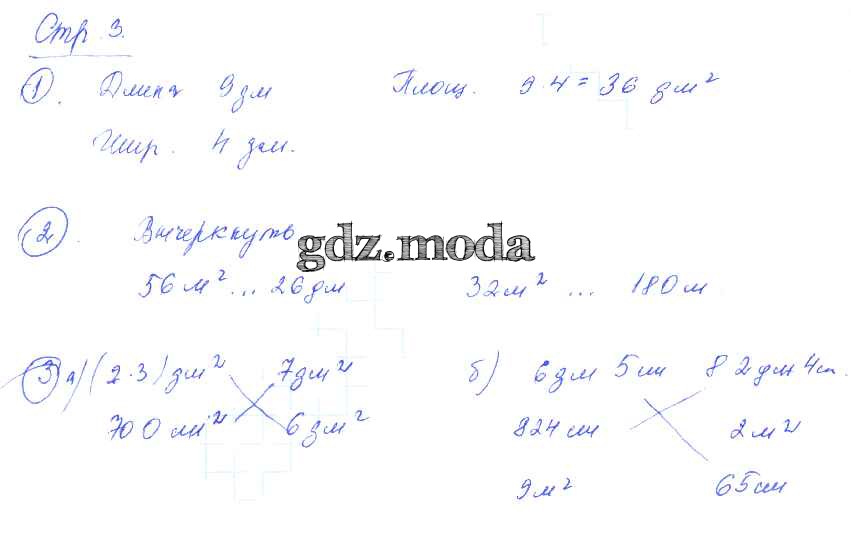 Стр. 3.
1. Длина 9 дм Площ. 9·4=36 дм²
Шир. 4 дм.
2. Вычеркнуть
gdz.moda
56 м² ... 26 дм 32 м² ... 180 м
3 а) (2·3) дм² 7 дм² б) 6 дм 5 см 82 дм 4 см.
700 см² 6 дм² 824 см 2 м²
9 м² 65 см